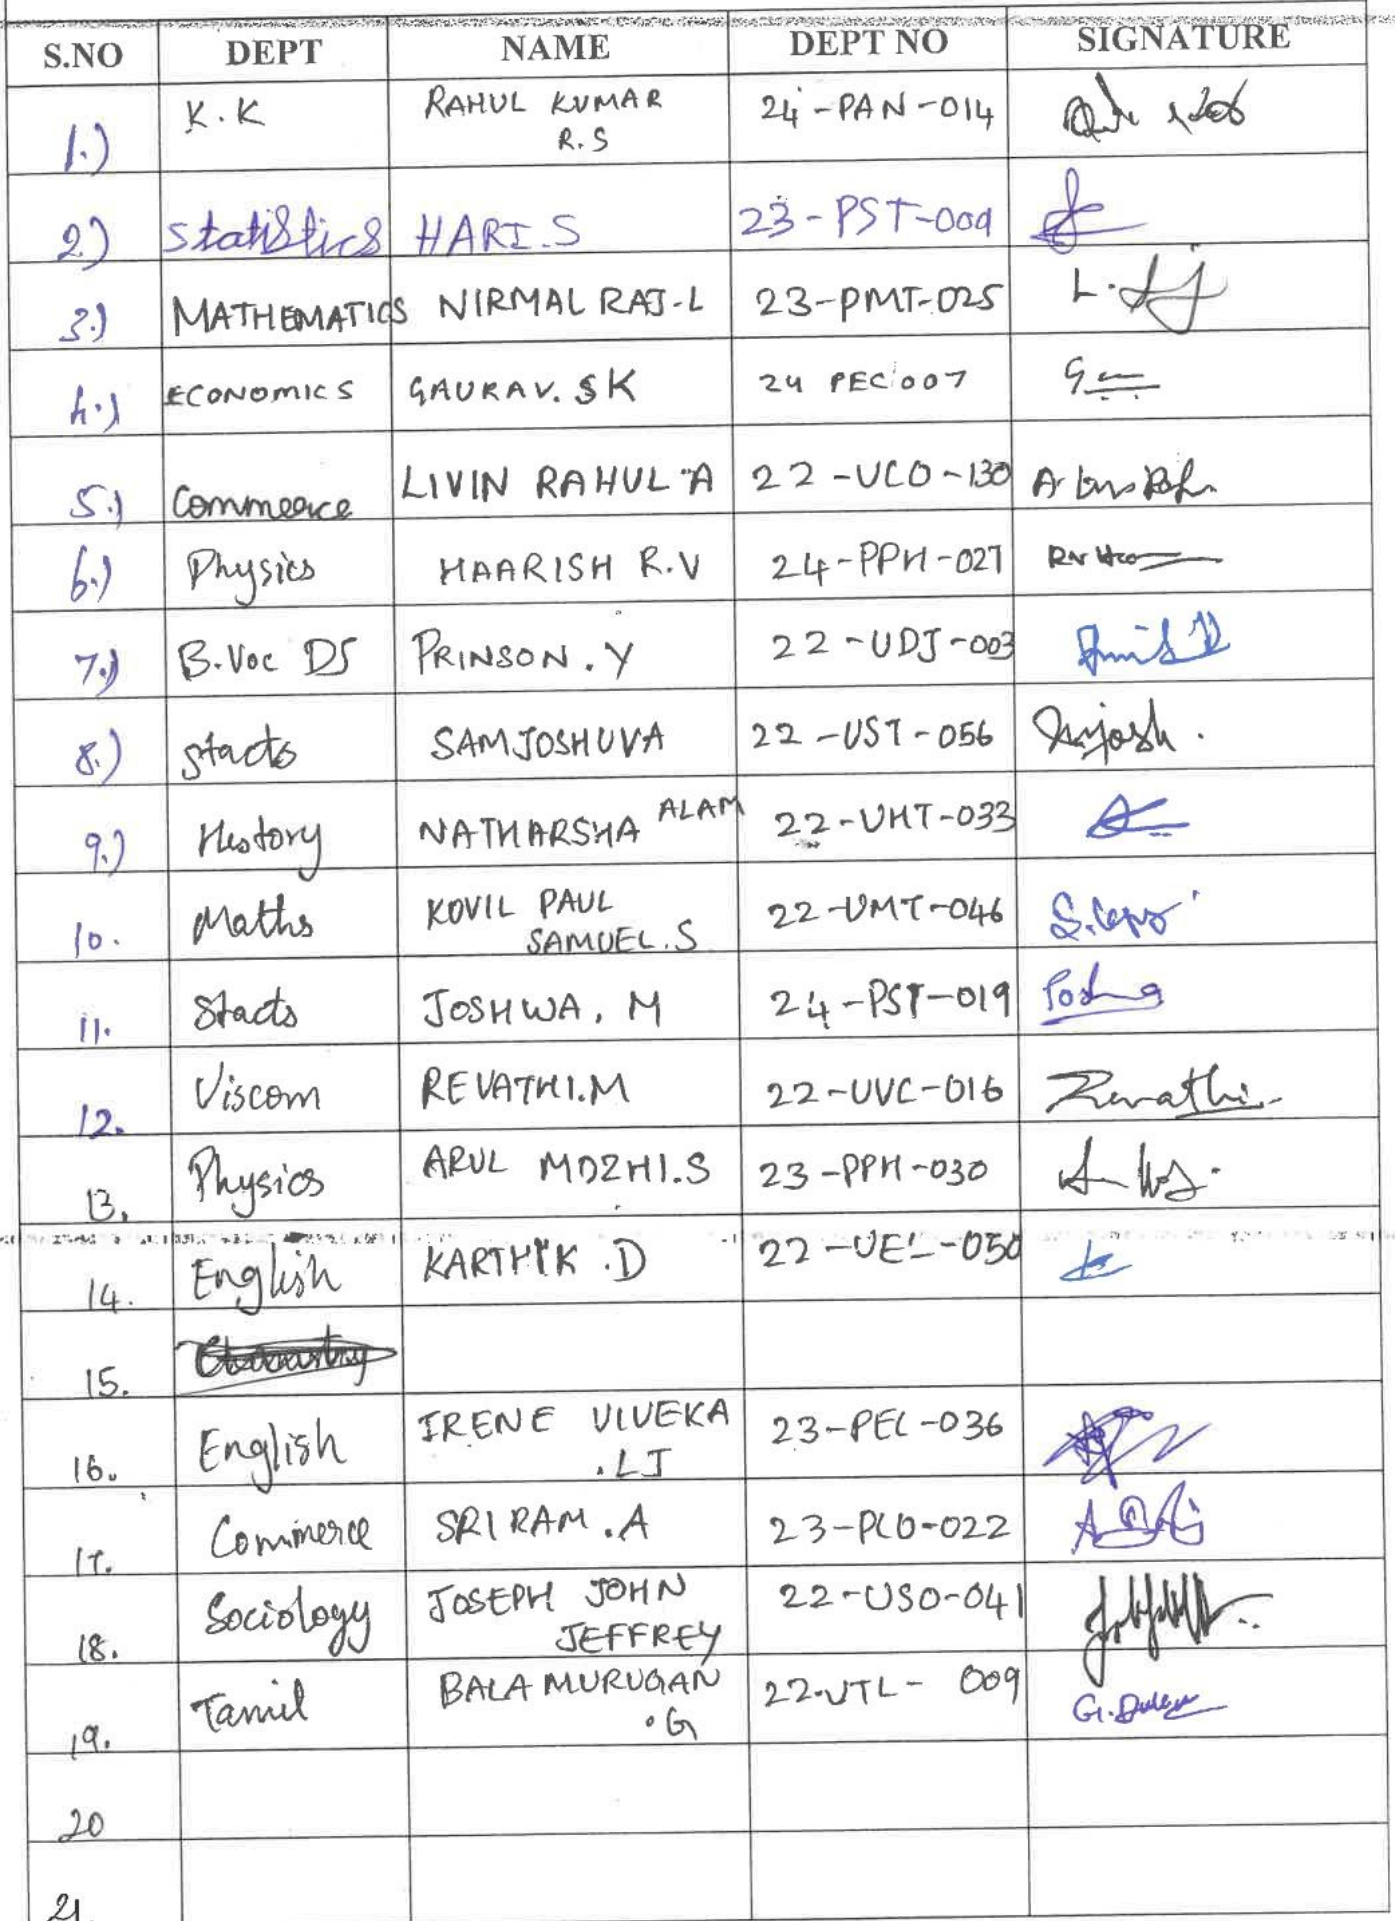 S.NO DEPT NAME DEPT NO SIGNATURE
1.) K.K RAHUL KUMAR R.S 24-PAN-014
2) Statistics HARI.S 23-PST-009
3.) MATHEMATICS NIRMAL RAJ-L 23-PMT-025
4.) ECONOMICS GAURAV. SK 24 PEC 007
5.) Commerce LIVIN RAHUL A 22-UCO-130
6.) Physics HAARISH R.V 24-PPH-027
7.) B.Voc DS PRINSON.Y 22-UDJ-003
8.) stacts SAMJOSHUVA 22-UST-056
9.) History NATHARSHA ALAM 22-UHT-033
10. Maths KOVIL PAUL SAMUEL.S 22-UMT-046
11. Stacts JOSHWA. M 24-PST-019
12. Viscom REVATHI.M 22-UVC-016 Revathi
13. Physics ARUL MOZHI.S 23-PPH-030
14. English KARTHIK .D 22-UEL-050
15.
16. English IRENE VIVEKA .LJ 23-PEL-036
17. Commerce SRIRAM.A 23-PCO-022
18. Sociology JOSEPH JOHN JEFFREY 22-USO-041
19. Tamil BALA MURUGAN .G 22-UTL-009
20
21.